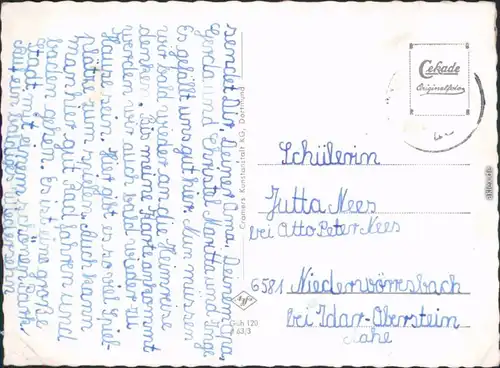 sendet Dir, Deine Oma, Deinem Opa,
Gerda und Christel Maritta und Inge
Es gefällt uns gut hier. Nun müssen
wir bald wieder an die Heimreise
denken. Bis meine Karte ankommt
werden wir auch bald wieder zu
Hause sein. Hier gibt es so viel Spiel-
plätze zum spielen. Auch kann
man hier gut Rad fahren und
baden gehen. Es ist eine große
Stadt mit einem schönen Park
Auf ein baldiges
Cramers Kunstanstalt KG, Dortmund
Agfa
Guh 120
63/3
Cekade
Originalfoto
Schülerin
Jutta Nees
bei Otto Peter Nees
6581 Niederwörresbach
bei Idar-Oberstein
Nahe